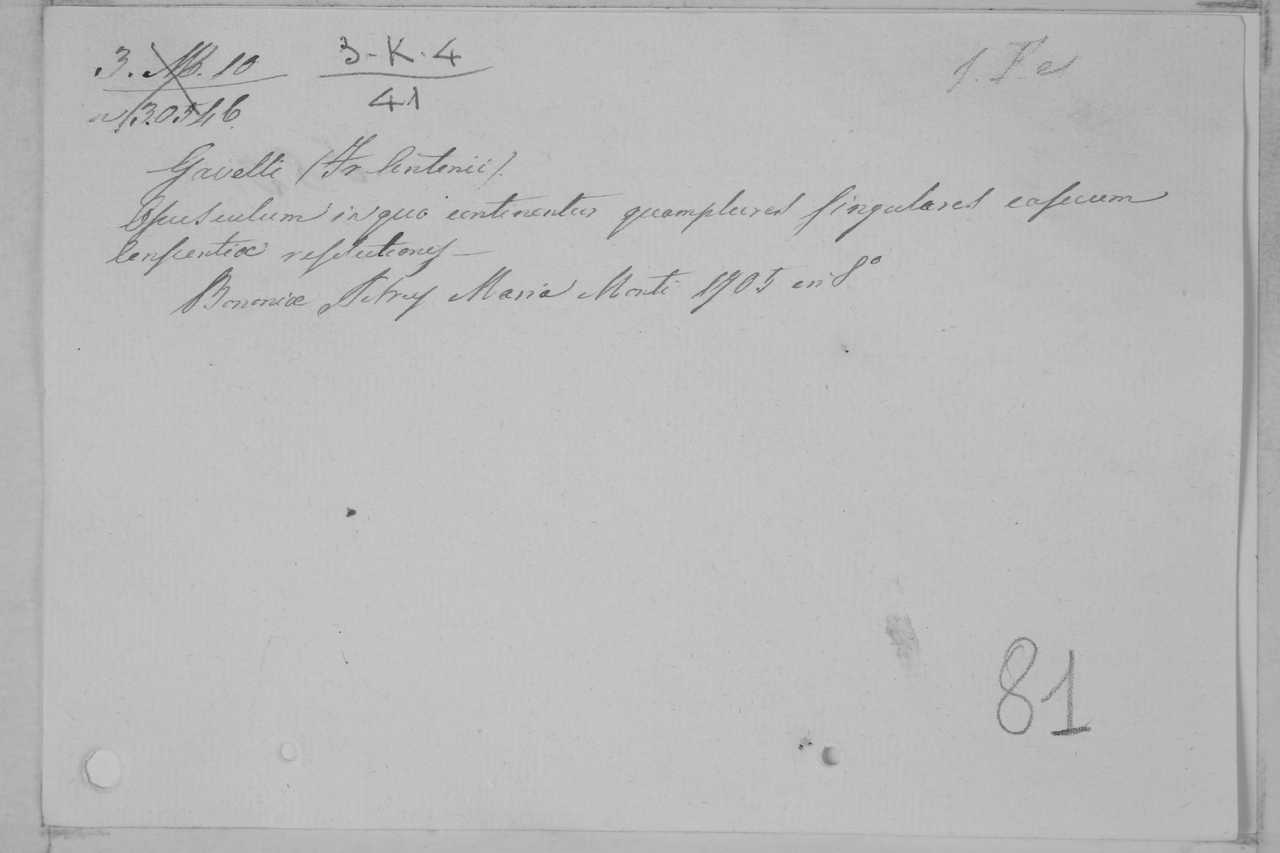 3. AB. 10
3-K-4
41
n 30546
Gavelli (Fr Antonii).
Opusculum in quo continentur quamplures singulares casuum
Consientiæ resolutiones —
Bononiæ Petrus Maria Monti 1705 in 8º
81